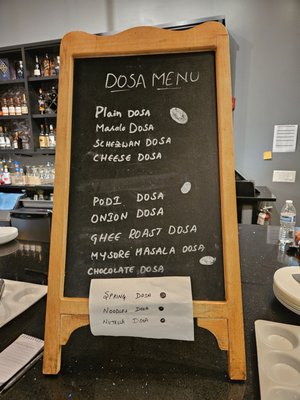 DOSA MENU
Plain DOSA
Masala DOSA
SCHEZWAN DOSA
CHEESE DOSA
PODI DOSA
ONION DOSA
GHEE ROAST DOSA
MYSORE MASALA DOSA
CHOCOLATE DOSA
SPRING DOSA
NOODLES DOSA
NUTELLA DOSA